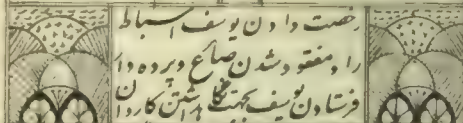 رخصت دادن یوسف اسباط
را و مفقود شدن صاع و پرده دار
فرستادن یوسف بجهت نگاه داشتن کاروان